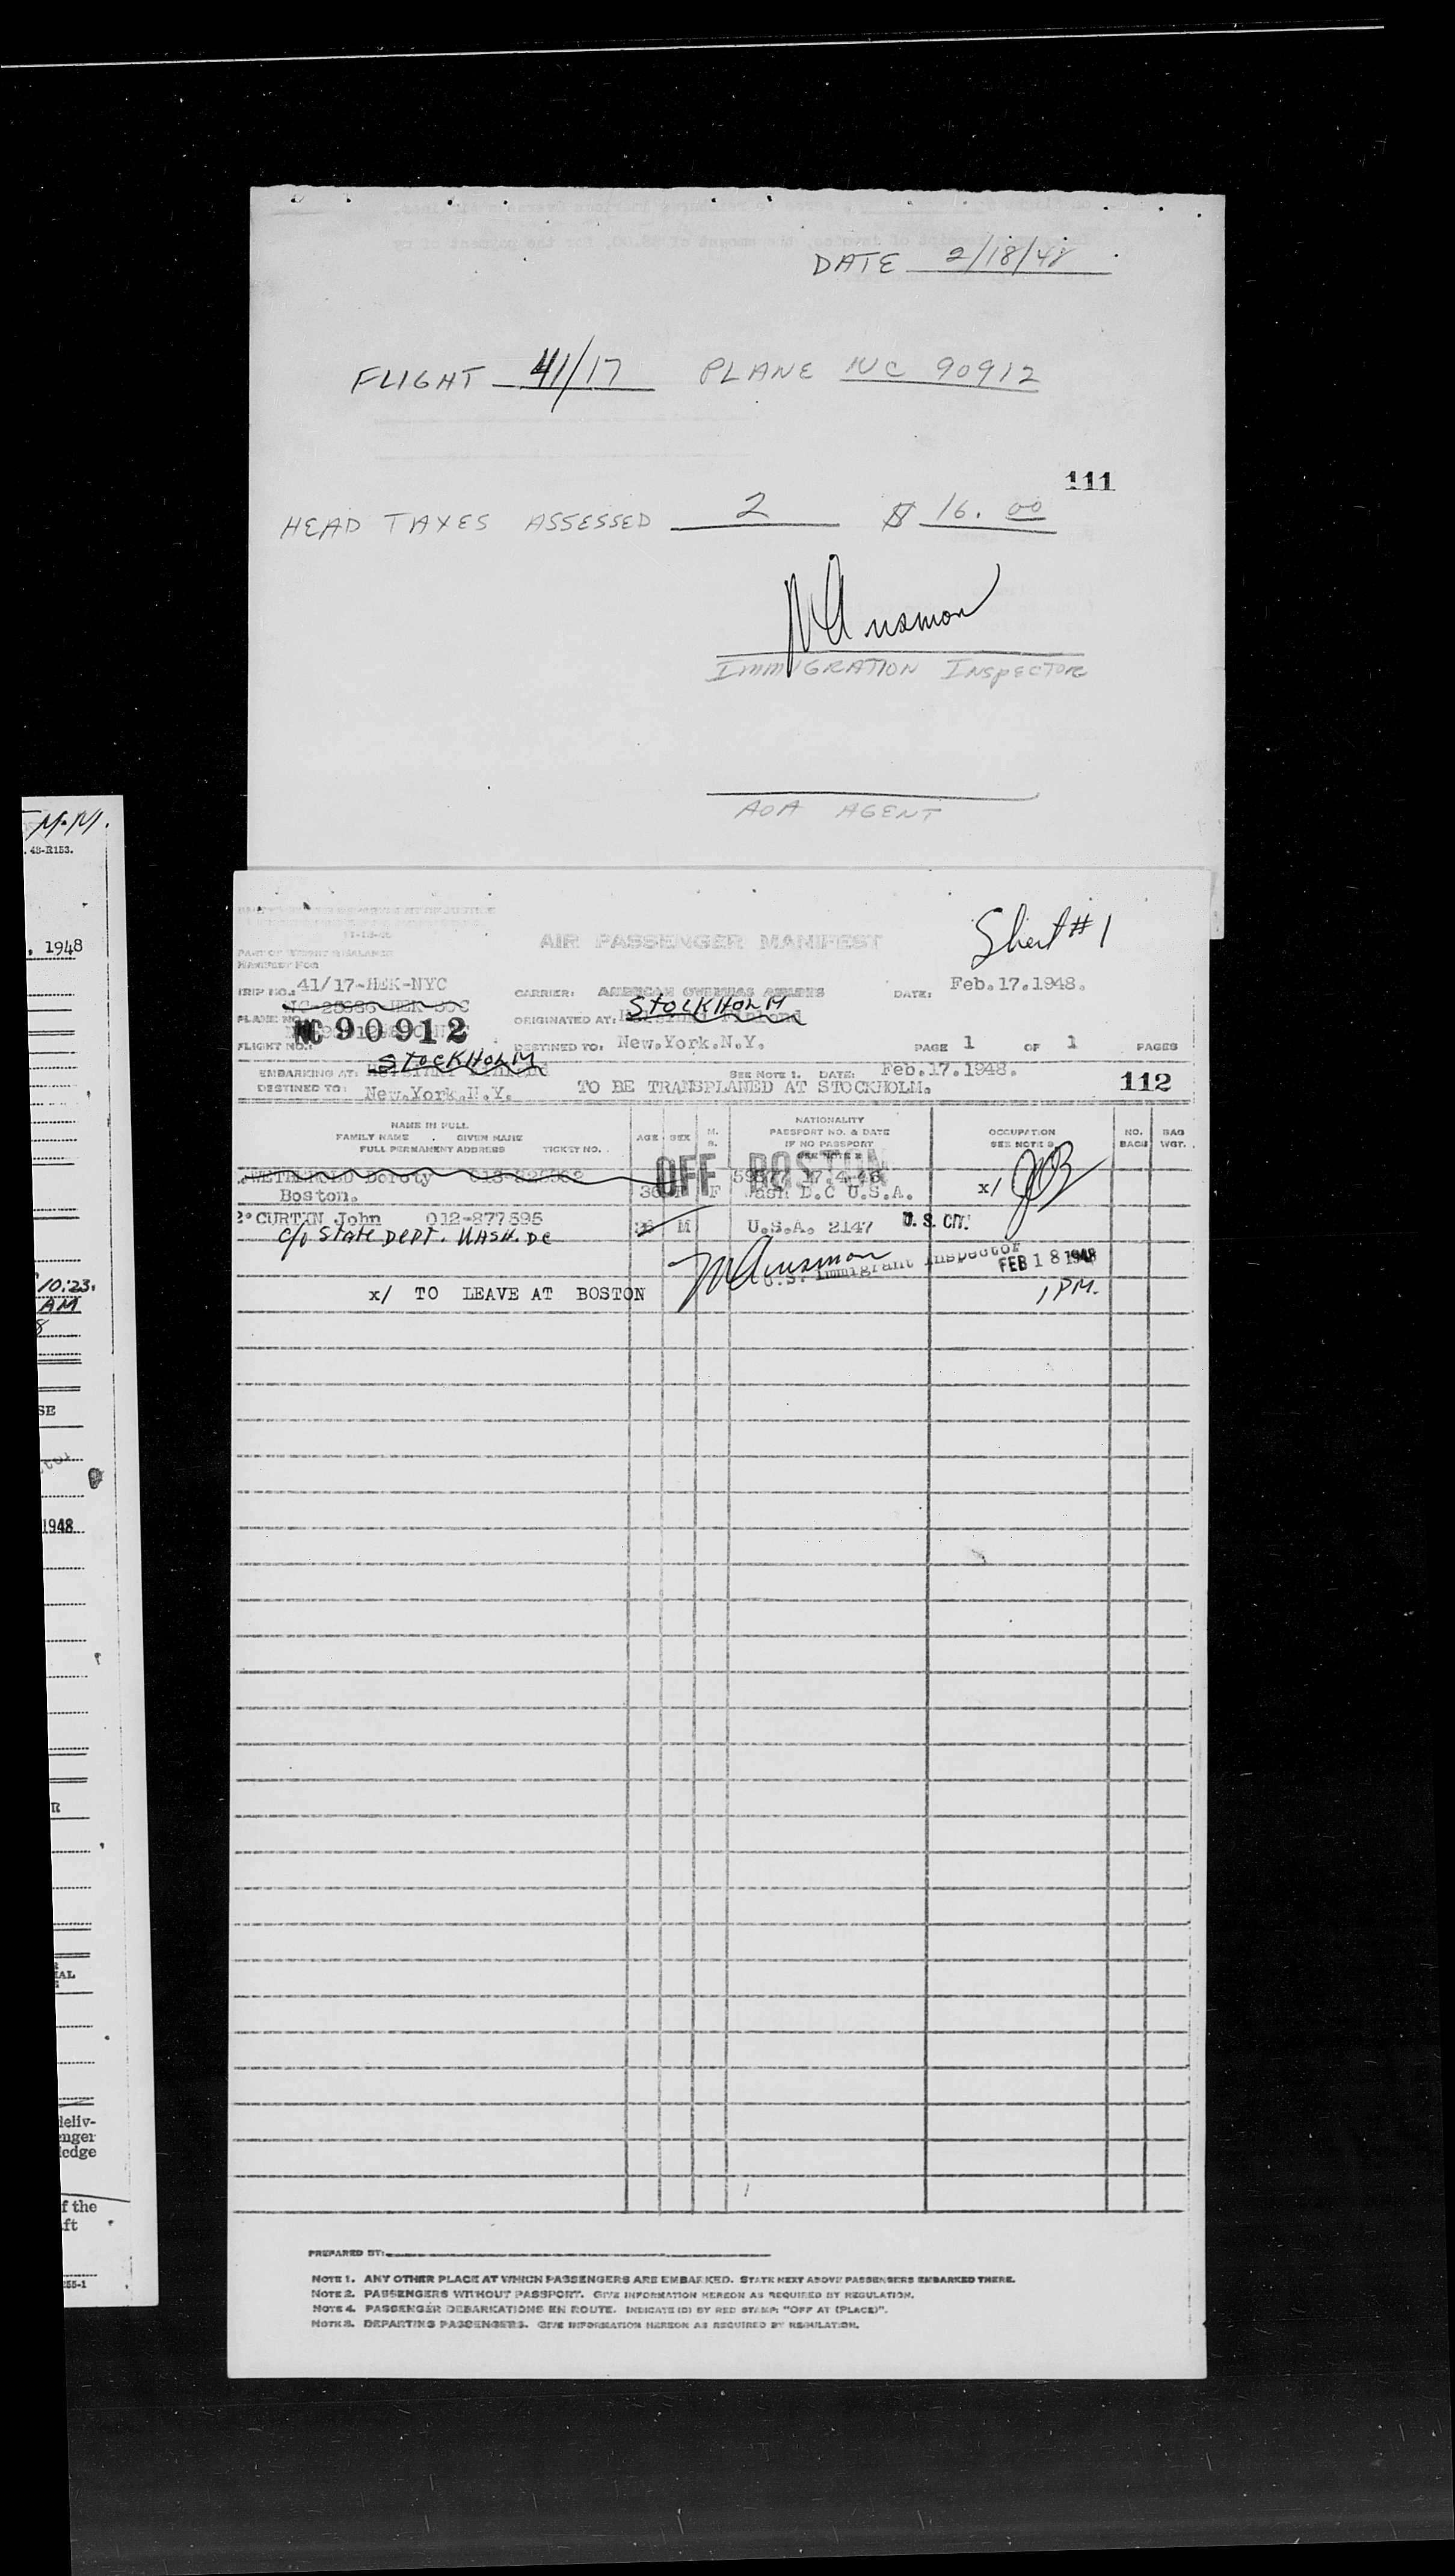 DATE 2/18/48
FLIGHT 41/17 PLANE NC 90912
111
HEAD TAXES ASSESSED 2 $ 16.00
IMMIGRATION INSPECTOR
AOA AGENT
M.M.
. 43-R153.
, 1948
10:23.
AM
8
SE
1948
R
IAL
deliv-
enger
ledge
f the
ft
255-1
Sheet #1
AIR PASSENGER MANIFEST
MANIFEST FOR
TRIP NO.: 41/17-HEK-NYC
CARRIER: AMERICAN OVERSEAS AIRLINES
DATE: Feb.17.1948.
PLANE NO. NC 90912
ORIGINATED AT: STOCKHOLM
FLIGHT NO.:
DESTINED TO: New.York.N.Y.
PAGE 1 OF 1 PAGES
EMBARKING AT: STOCKHOLM
SEE NOTE 1. DATE: Feb.17.1948.
DESTINED TO: New.York.N.Y.
TO BE TRANSPLANED AT STOCKHOLM.
112
NAME IN FULL
FAMILY NAME GIVEN NAME
FULL PERMANENT ADDRESS TICKET NO.
AGE SEX M. S.
NATIONALITY
PASSPORT NO. & DATE
IF NO PASSPORT
SEE NOTE 2
OCCUPATION
SEE NOTE 3
NO. BAGS
BAG WGT.
Doroty
OFF BOSTON
17.4.46
Boston. 36 F Wash D.C U.S.A. x/
2° CURTIN John 012-877595 M U.S.A. 2147 U.S. CIT.
c/o State Dept. Wash. DC
U.S. Immigrant Inspector
FEB 18 1948
1 PM.
x/ TO LEAVE AT BOSTON
PREPARED BY:
NOTE 1. ANY OTHER PLACE AT WHICH PASSENGERS ARE EMBARKED. STATE NEXT ABOVE PASSENGERS EMBARKED THERE.
NOTE 2. PASSENGERS WITHOUT PASSPORT. GIVE INFORMATION HEREON AS REQUIRED BY REGULATION.
NOTE 4. PASSENGER DEBARKATIONS EN ROUTE. INDICATE (D) BY RED STAMP: "OFF AT (PLACE)".
NOTE 3. DEPARTING PASSENGERS. GIVE INFORMATION HEREON AS REQUIRED BY REGULATION.